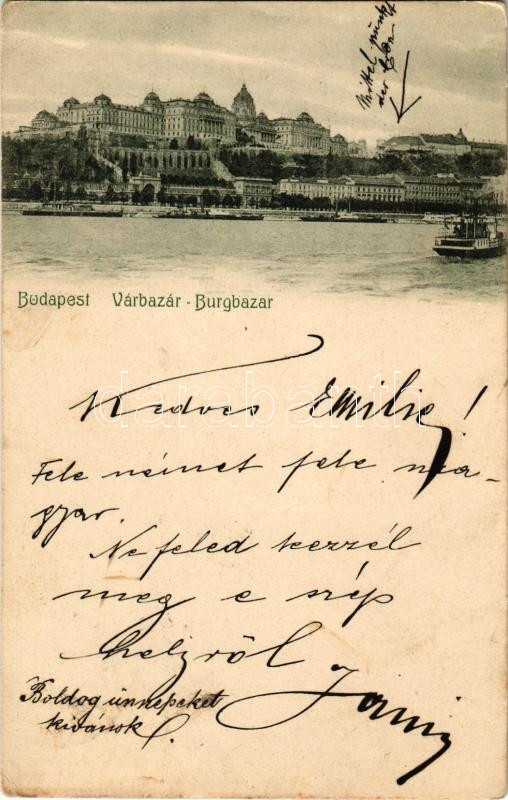 Mittel punkt
der
Budapest Várbazár - Burgbazar
Kedves Emilie!
Fele német fele ma-
gyar.
Ne feled kezzél
meg e szép
helyről
Boldog ünnepeket
kivánok
darabanth